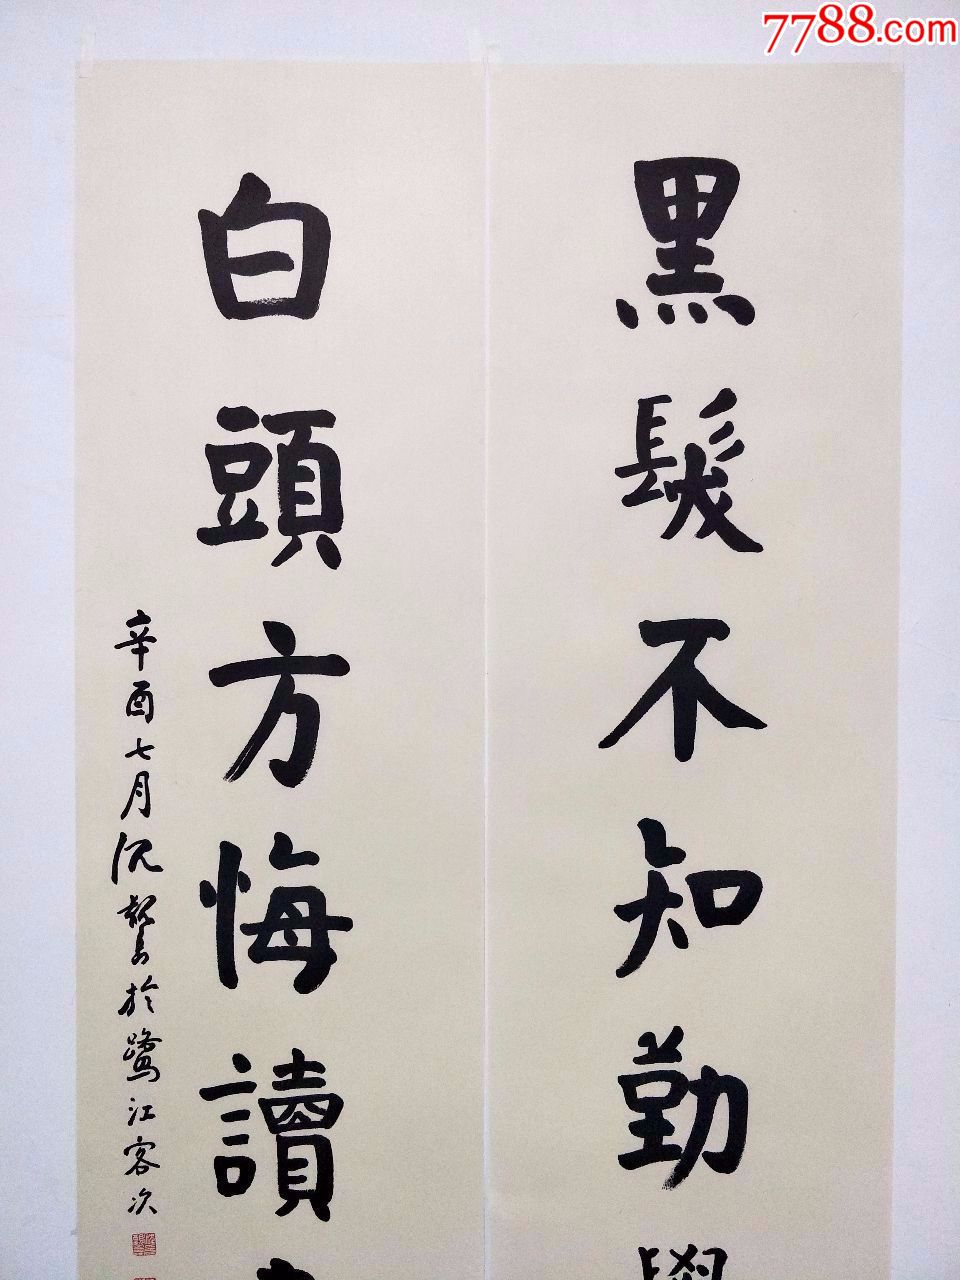 7788.com
黑髮不知勤學
白頭方悔讀
辛酉七月沉觀書於鷺江客次